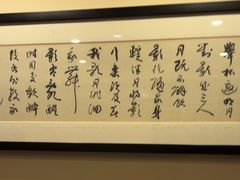 舉杯邀明月
對影成三人
月既不解飲
影徒隨我身
暫伴月將影
行樂須及春
我歌月徘徊
我舞
影零亂醒
時同交歡醉
後各分散永